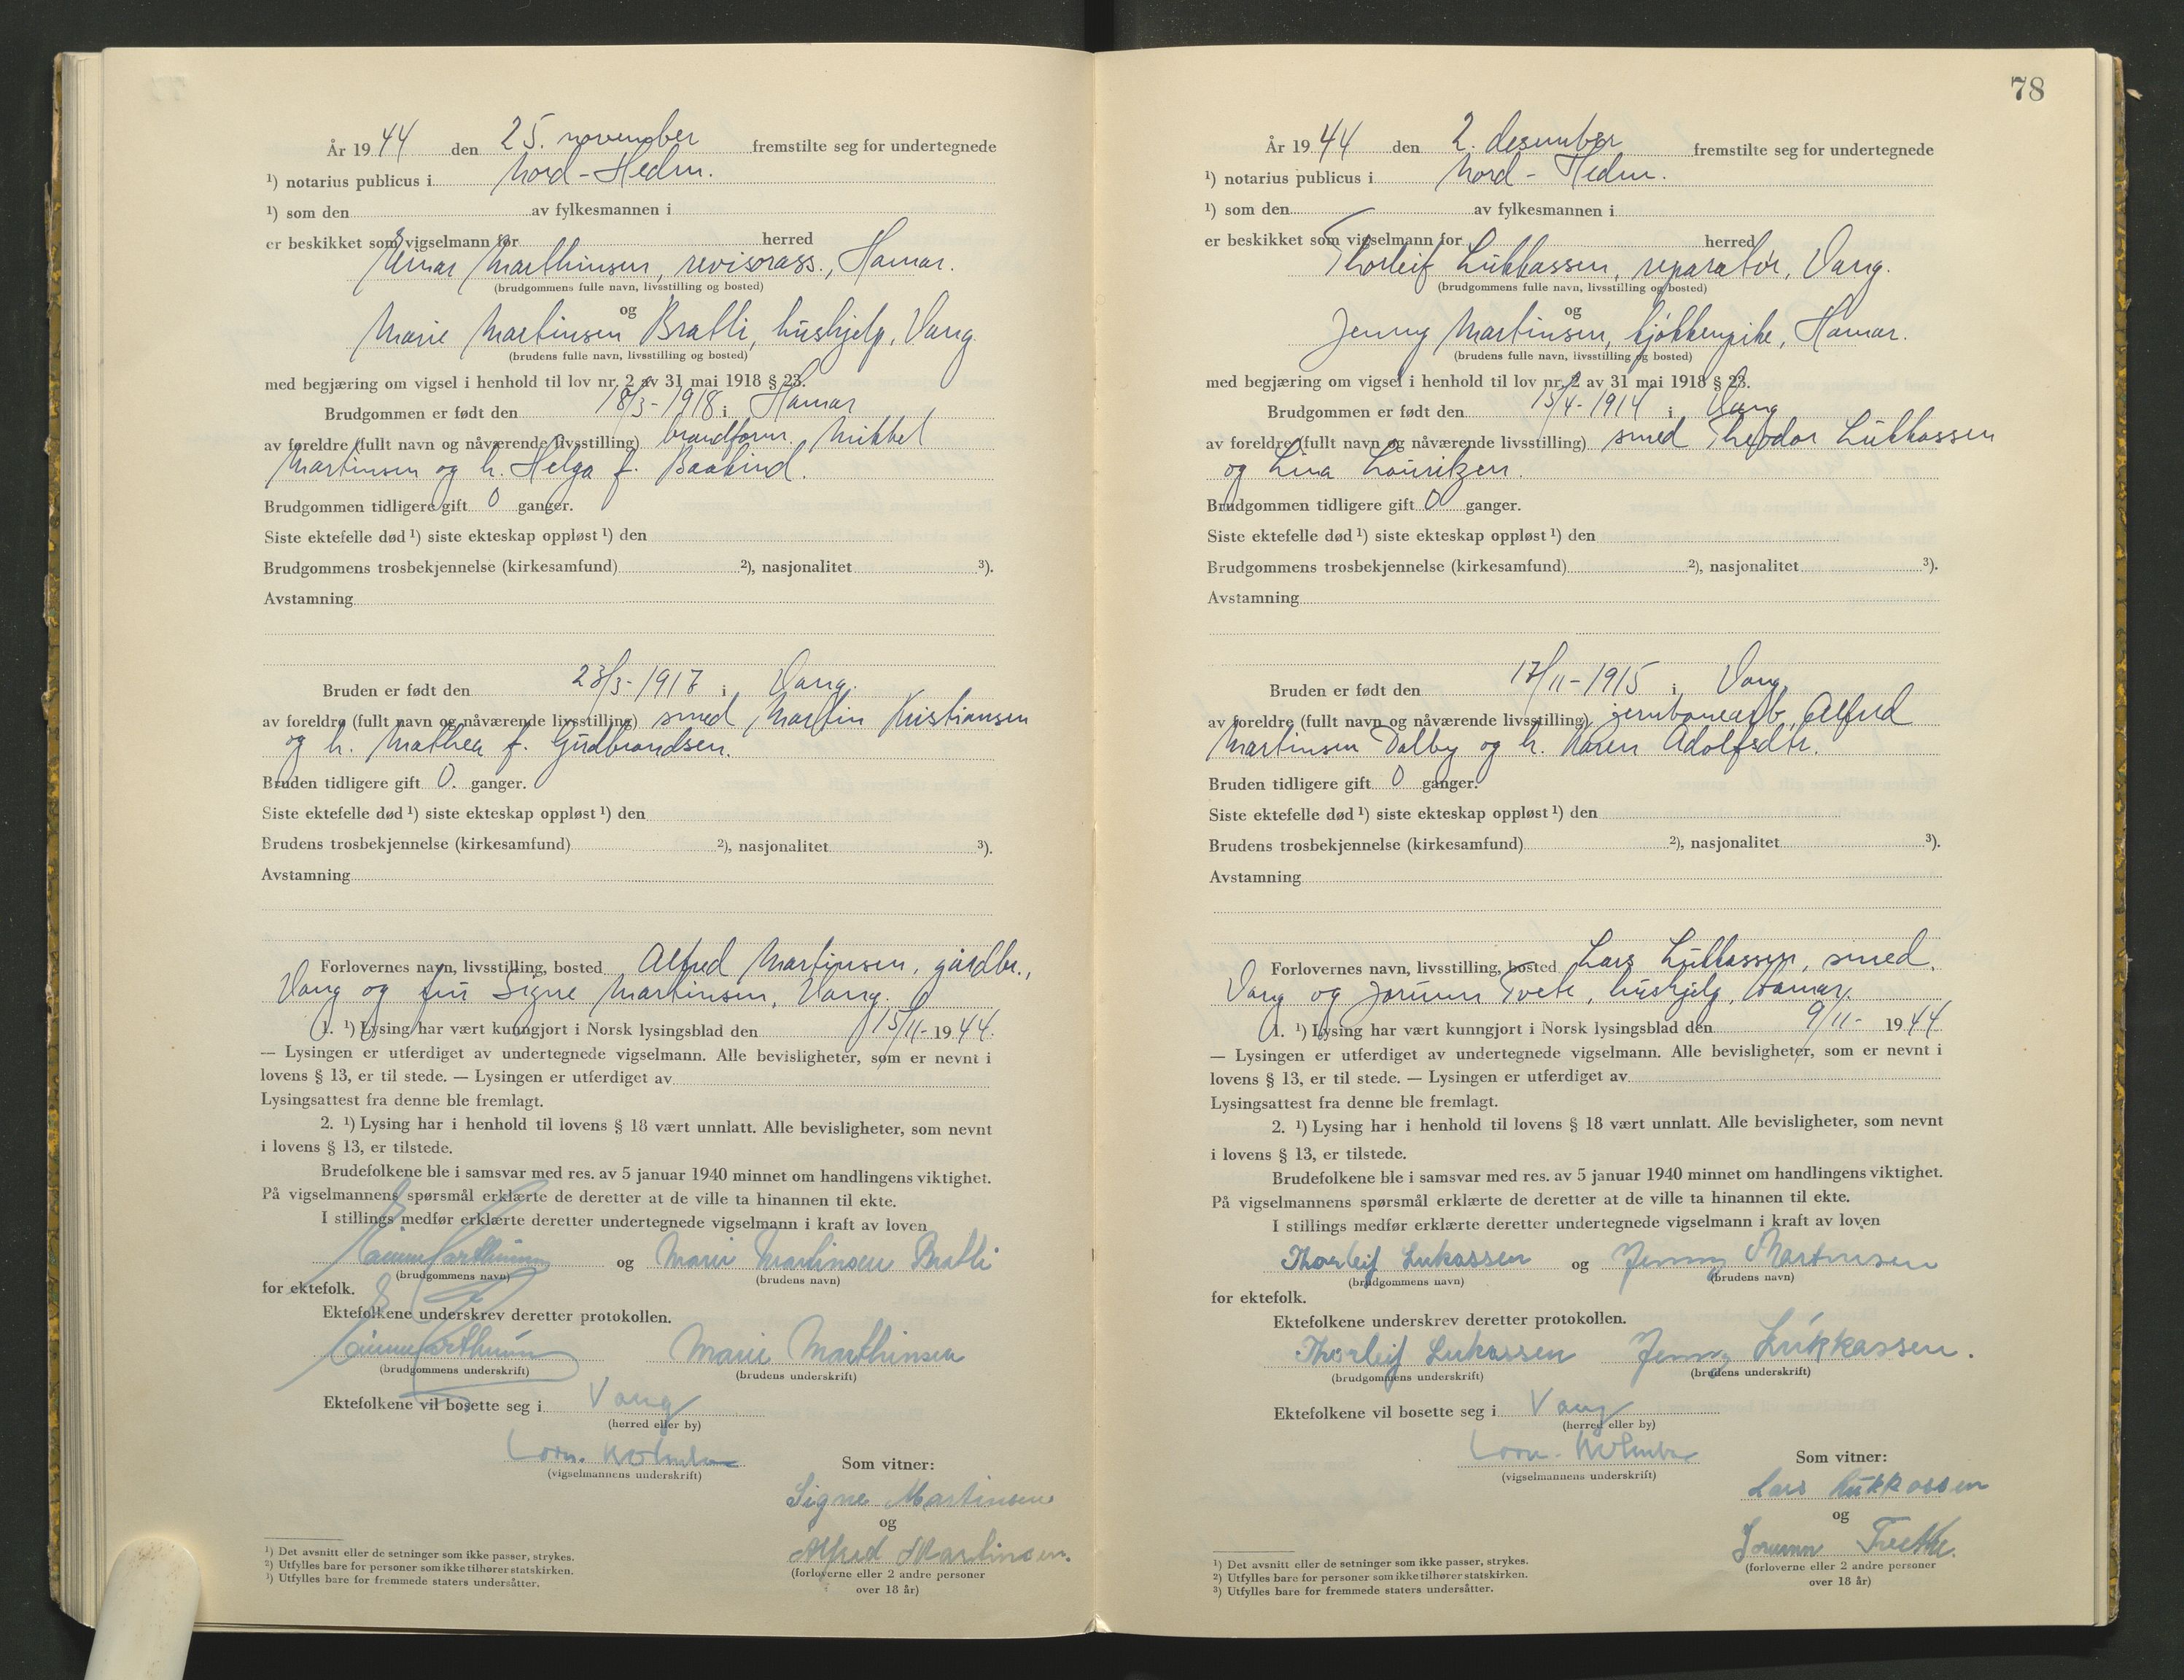 År 1944 den 25. november fremstilte seg for undertegnede
¹) notarius publicus i Nord-Hedm.
¹) som den av fylkesmannen i
er beskikket som vigselmann for herred
Einar Marthinsen, revisorass., Hamar.
(brudgommens fulle navn, livsstilling og bosted)
og
Marie Martinsen Bratli, hushjelp, Vang
(brudens fulle navn, livsstilling og bosted)
med begjæring om vigsel i henhold til lov nr. 2 av 31 mai 1918 § 23.
Brudgommen er født den 18/3-1918 i Hamar
av foreldre (fullt navn og nåværende livsstilling) brandform. Mikkel
Martinsen og h. Helga f. Baakind.
Brudgommen tidligere gift 0 ganger.
Siste ektefelle død ¹) siste ekteskap oppløst ¹) den
Brudgommens trosbekjennelse (kirkesamfund) ²), nasjonalitet ³).
Avstamning
Bruden er født den 23/3-1917 i Vang.
av foreldre (fullt navn og nåværende livsstilling) smed Martin Kristiansen
og h. Mathea f. Gudbrandsen.
Bruden tidligere gift 0. ganger.
Siste ektefelle død ¹) siste ekteskap oppløst ¹) den
Brudens trosbekjennelse (kirkesamfund) ²), nasjonalitet ³).
Avstamning
Forlovernes navn, livsstilling, bosted Alfred Martinsen, gårdbr.,
Vang og fru Signe Martinsen, Vang.
1. ¹) Lysing har vært kunngjort i Norsk lysingsblad den 15/11-1944.
— Lysingen er utferdiget av undertegnede vigselmann. Alle bevisligheter, som er nevnt i
lovens § 13, er til stede. — Lysingen er utferdiget av
Lysingsattest fra denne ble fremlagt.
2. ¹) Lysing har i henhold til lovens § 18 vært unnlatt. Alle bevisligheter, som nevnt
i lovens § 13, er tilstede.
Brudefolkene ble i samsvar med res. av 5 januar 1940 minnet om handlingens viktighet.
På vigselmannens spørsmål erklærte de deretter at de ville ta hinannen til ekte.
I stillings medfør erklærte deretter undertegnede vigselmann i kraft av loven
Einar Marthinsen og Marie Martinsen Bratli
(brudgommens navn) (brudens navn)
for ektefolk.
Ektefolkene underskrev deretter protokollen.
Einar Marthinsen Marie Marthinsen
(brudgommens underskrift) (brudens underskrift)
Ektefolkene vil bosette seg i Vang
(herred eller by)
(vigselmannens underskrift)
Som vitner:
Signe Martinsen
og
Alfred Martinsen.
(forloverne eller 2 andre personer
over 18 år)
¹) Det avsnitt eller de setninger som ikke passer, strykes.
²) Utfylles bare for personer som ikke tilhører statskirken.
³) Utfylles bare for fremmede staters undersåtter.
78
År 1944 den 2. desember fremstilte seg for undertegnede
¹) notarius publicus i Nord-Hedm.
¹) som den av fylkesmannen i
er beskikket som vigselmann for herred
Thorleif Lukkassen, reparatør, Vang.
(brudgommens fulle navn, livsstilling og bosted)
og
Jenny Martinsen, kjøkkenpike, Hamar.
(brudens fulle navn, livsstilling og bosted)
med begjæring om vigsel i henhold til lov nr. 2 av 31 mai 1918 § 23.
Brudgommen er født den 15/4-1914 i Vang
av foreldre (fullt navn og nåværende livsstilling) smed Theodor Lukkassen
og Lina Lauritzen.
Brudgommen tidligere gift 0 ganger.
Siste ektefelle død ¹) siste ekteskap oppløst ¹) den
Brudgommens trosbekjennelse (kirkesamfund) ²), nasjonalitet ³).
Avstamning
Bruden er født den 17/11-1915 i Vang
av foreldre (fullt navn og nåværende livsstilling) jernbanearb. Alfred
Martinsen Dalby og h. Karen Adolfsdtr.
Bruden tidligere gift 0 ganger.
Siste ektefelle død ¹) siste ekteskap oppløst ¹) den
Brudens trosbekjennelse (kirkesamfund) ²), nasjonalitet ³).
Avstamning
Forlovernes navn, livsstilling, bosted Lars Lukkassen, smed,
Vang og Jorunn Tvete, hushjelp, Hamar.
1. ¹) Lysing har vært kunngjort i Norsk lysingsblad den 9/11- 1944
— Lysingen er utferdiget av undertegnede vigselmann. Alle bevisligheter, som er nevnt i
lovens § 13, er til stede. — Lysingen er utferdiget av
Lysingsattest fra denne ble fremlagt.
2. ¹) Lysing har i henhold til lovens § 18 vært unnlatt. Alle bevisligheter, som nevnt
i lovens § 13, er tilstede.
Brudefolkene ble i samsvar med res. av 5 januar 1940 minnet om handlingens viktighet.
På vigselmannens spørsmål erklærte de deretter at de ville ta hinannen til ekte.
I stillings medfør erklærte deretter undertegnede vigselmann i kraft av loven
Thorleif Lukassen og Jenny Martinsen
(brudgommens navn) (brudens navn)
for ektefolk.
Ektefolkene underskrev deretter protokollen.
Thorleif Lukassen Jenny Lukkassen.
(brudgommens underskrift) (brudens underskrift)
Ektefolkene vil bosette seg i Vang
(herred eller by)
(vigselmannens underskrift)
Som vitner:
Lars Lukkassen
og
Jorunn
(forloverne eller 2 andre personer
over 18 år)
¹) Det avsnitt eller de setninger som ikke passer, strykes.
²) Utfylles bare for personer som ikke tilhører statskirken.
³) Utfylles bare for fremmede staters undersåtter.